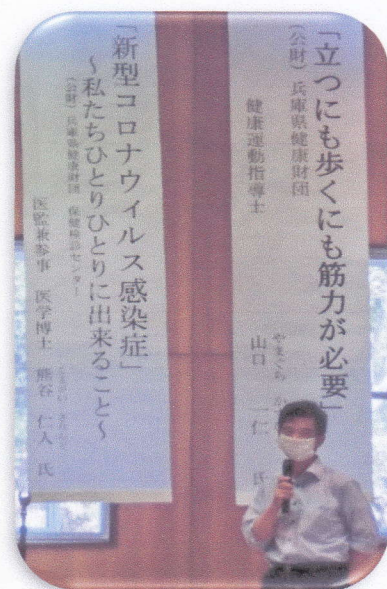 「立つにも歩くにも筋力が必要」
（公財）兵庫県健康財団
健康運動指導士
山口 一仁 氏
「新型コロナウィルス感染症」
～私たちひとりひとりに出来ること～
（公財）兵庫県健康財団 保健検診センター
医監兼参事 医学博士 熊谷 仁人 氏